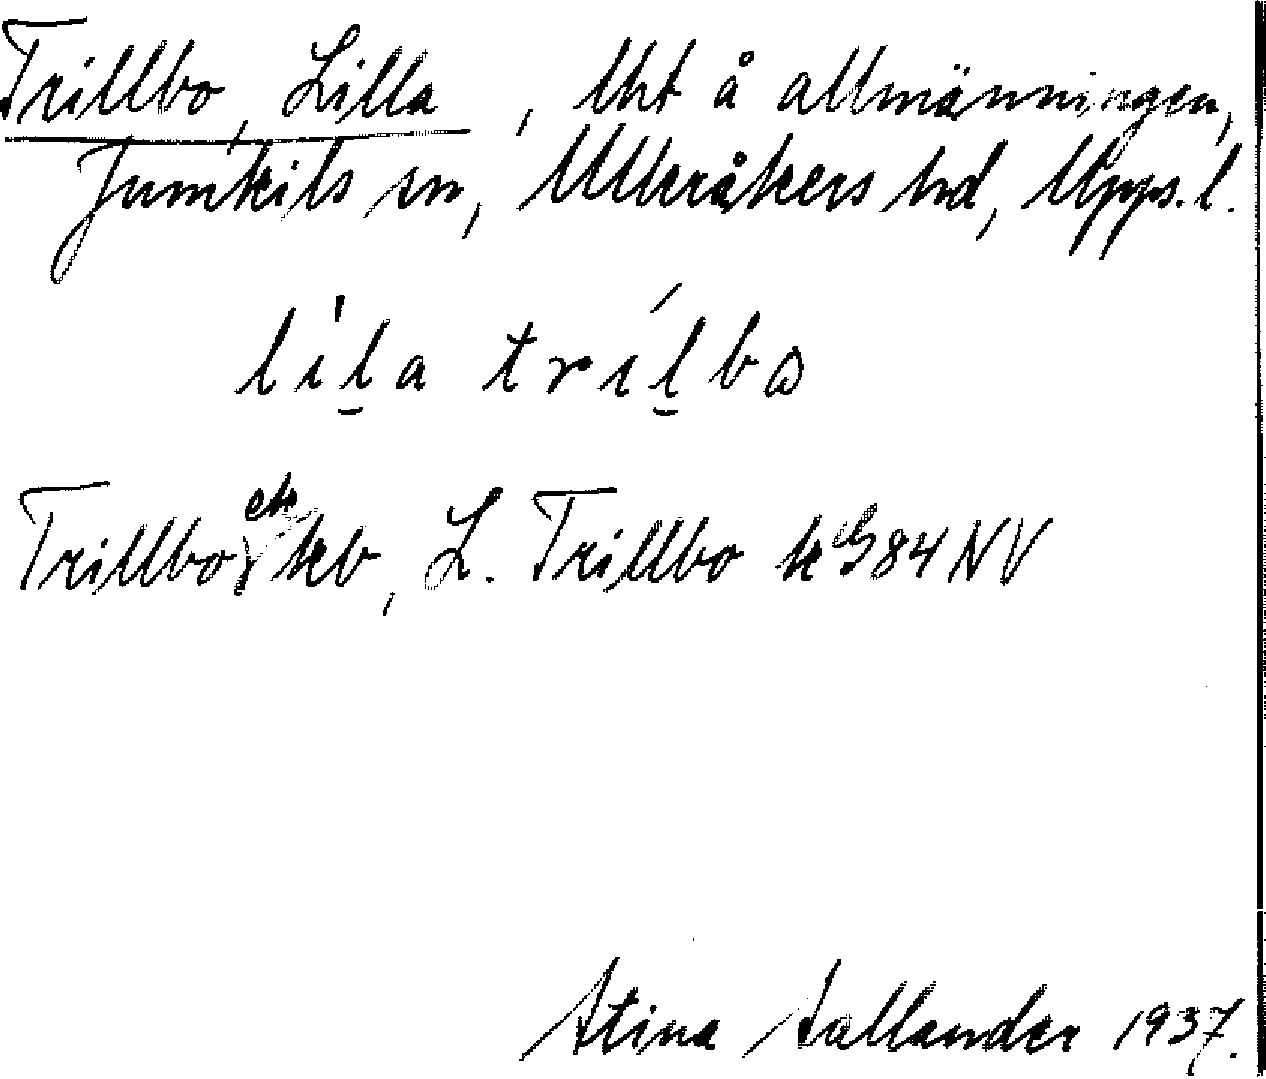 Trillbo, Lilla, lht å allmänningen,
Jumkils sn, Ulleråkers hd, Upps. l.
lìl̮a tríl̮bω
Trillbo ek kb, L. Trillbo k G84NV
Stina Sallander 1937.